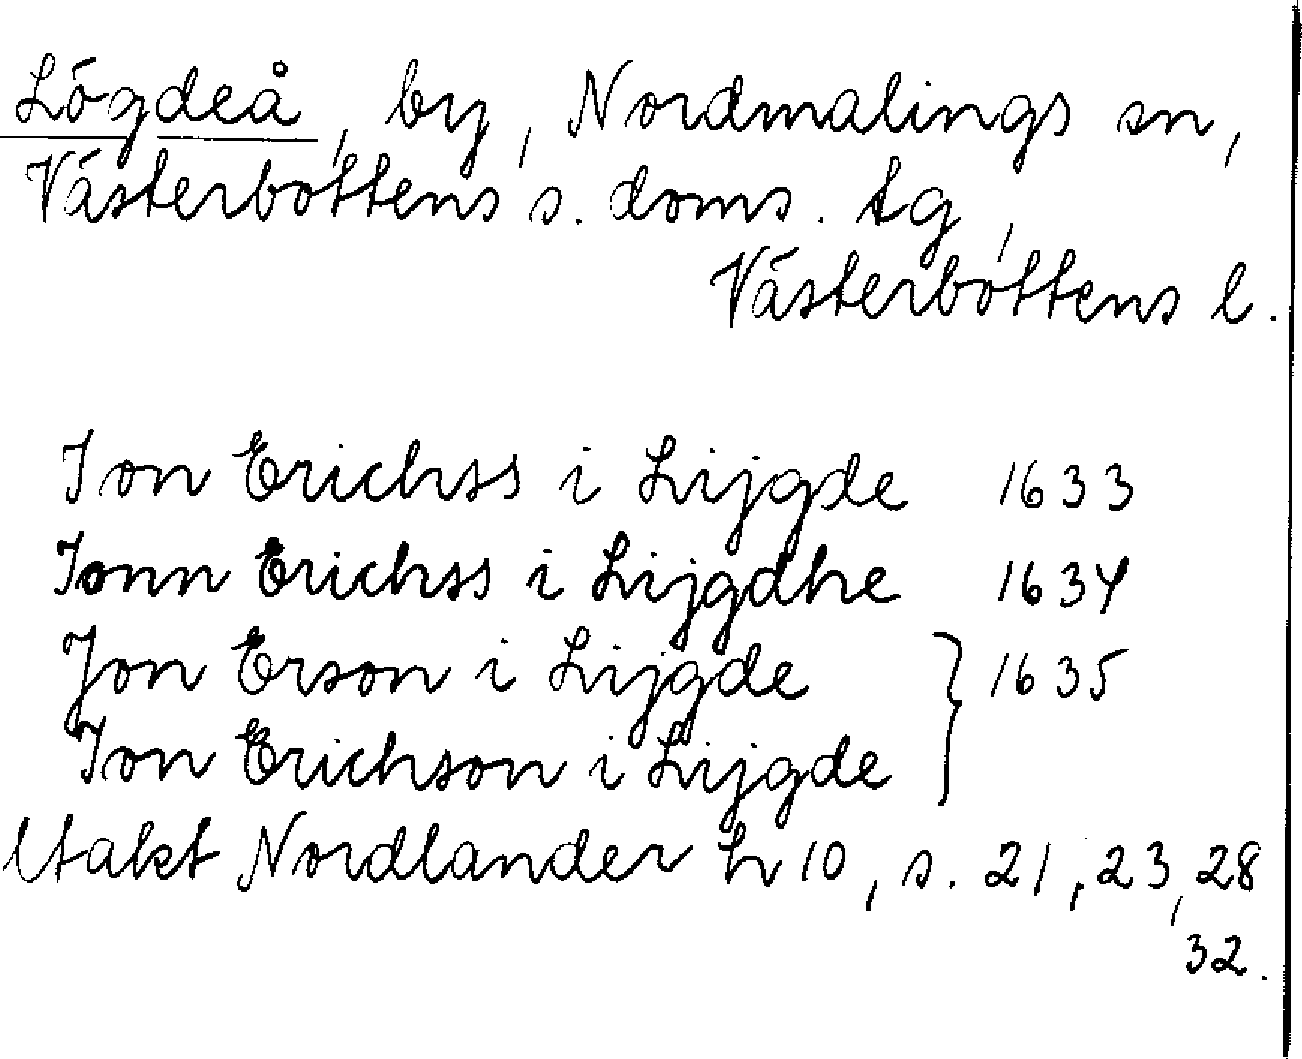 Lögdeå, by, Nordmalings sn,
Västerbottens s. doms. tg,
Västerbottens l.
Jon Erichss i Lijgde 1633
Jonn Erichss i Lijgdhe 1634
Jon Erson i Lijgde } 1635
Jon Erichson i Lijgde
Utakt Nordlander h 10, s. 21, 23, 28,
32.